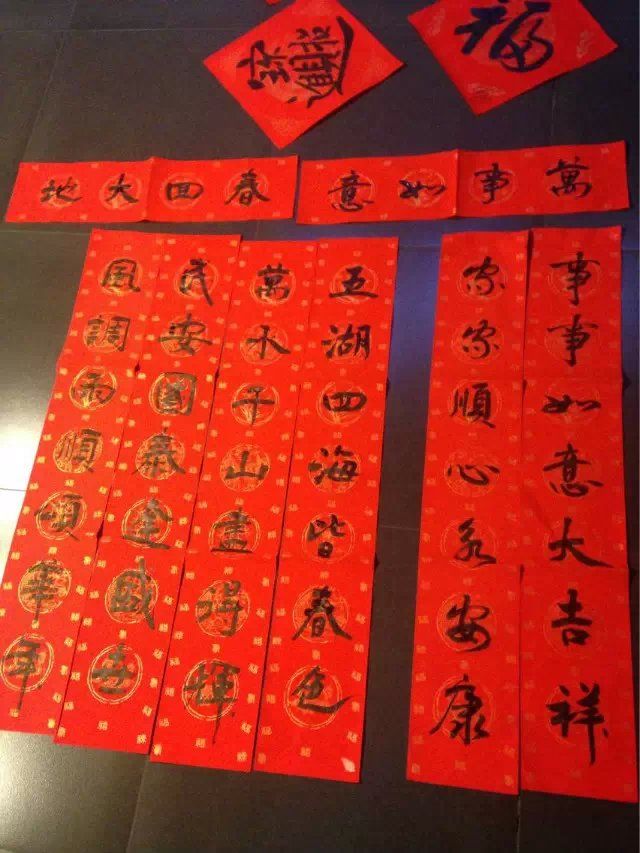 招財進寶
福
萬事如意
春回大地
事事如意大吉祥
家家順心永安康
五湖四海皆春色
萬水千山盡得輝
民安國泰逢盛世
風調雨順頌華年